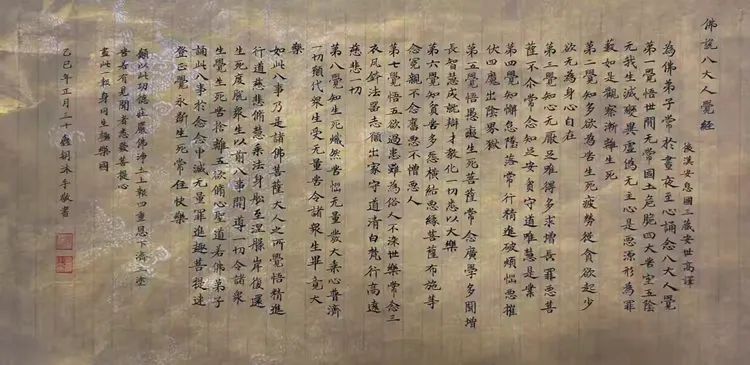 佛説八大人覺經
後漢安息國三藏安世高譯
為佛弟子常於晝夜至心誦念八大人覺
第一覺悟世間无常國土危脆四大苦空五陰
无我生滅變異虛偽无主心是惡源形為罪
藪如是觀察漸離生死
第二覺知多欲為苦生死疲勞從貪欲起少
欲无為身心自在
第三覺知心无厭足唯得多求增長罪惡菩
薩不尒常念知足安貧守道唯慧是業
第四覺知懈怠墜落常行精進破煩惱惡摧
伏四魔出陰界獄
第五覺悟愚癡生死菩薩常念廣學多聞增
長智慧成就辯才教化一切悉以大樂
第六覺知貧苦多怨橫結惡緣菩薩布施等
念怨親不念舊惡不憎惡人
第七覺悟五欲過患雖為俗人不染世樂常念三
衣瓦鉢法器志願出家守道清白梵行高遠
慈悲一切
第八覺知生死熾然苦惱无量發大乘心普濟
一切願代衆生受无量苦令諸衆生畢竟大
樂
如此八事乃是諸佛菩薩大人之所覺悟精進
行道慈悲脩慧乘法身船至涅槃岸復還
生死度脫衆生以前八事開導一切令諸衆
生覺生死苦捨離五欲脩心聖道若佛弟子
誦此八事於念念中滅无量罪進趣菩提速
登正覺永斷生死常住快樂
願以此功德莊嚴佛淨土上報四重恩下濟三塗
苦若有見聞者悉發菩提心
盡此一報身同生極樂國
乙巳年正月三十胡詠手敬書